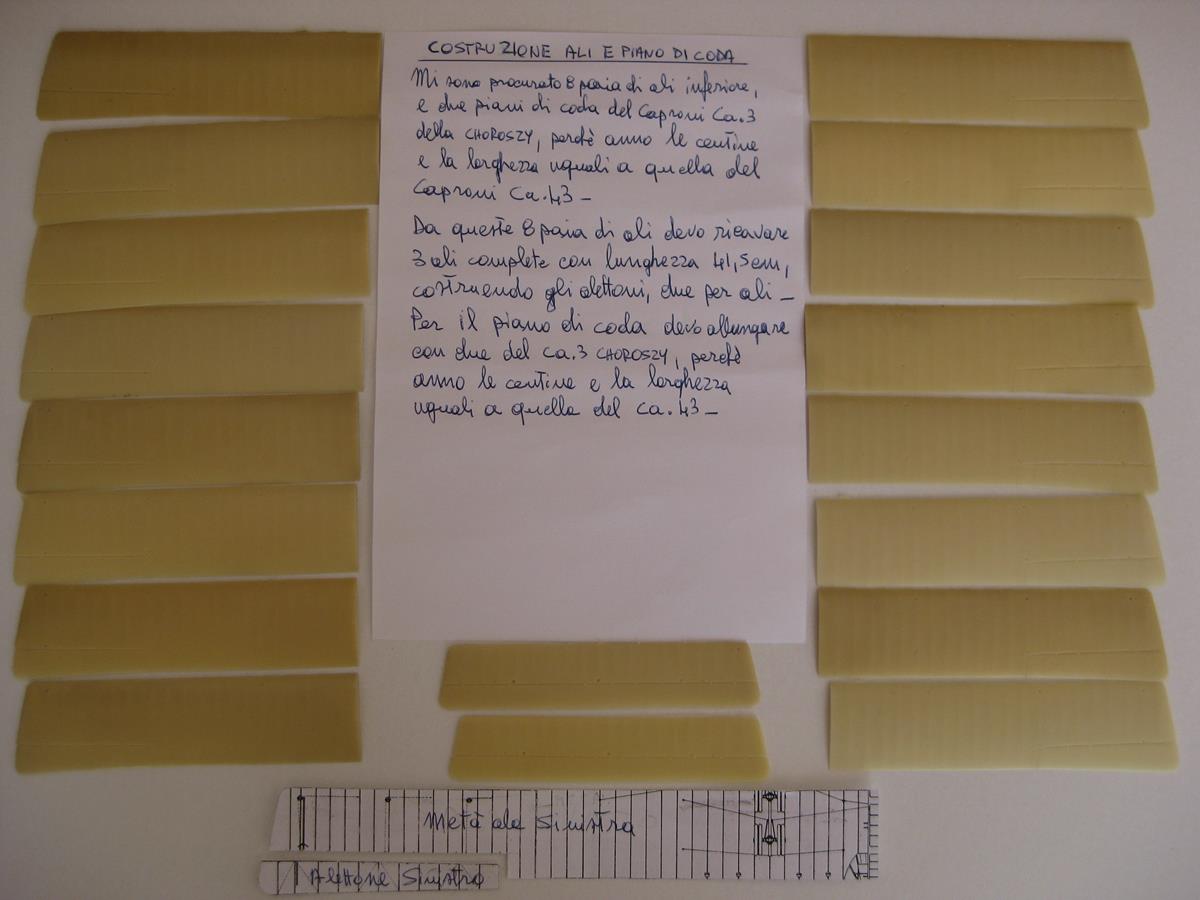 COSTRUZIONE ALI E PIANO DI CODA
Mi sono procurato 8 paia di ali inferiore,
e due piani di coda del Caproni Ca.3
della CHOROSZY, perchè anno le centine
e la larghezza uguali a quella del
Caproni Ca.43-
Da queste 8 paia di ali devo ricavare
3 ali complete con lunghezza 41,5cm,
costruendo gli alettoni, due per ali-
Per il piano di coda devo allungare
con due del Ca.3 CHOROSZY, perchè
anno le centine e la larghezza
uguali a quella del Ca.43-
Metà ala Sinistra
Alettone Sinistro